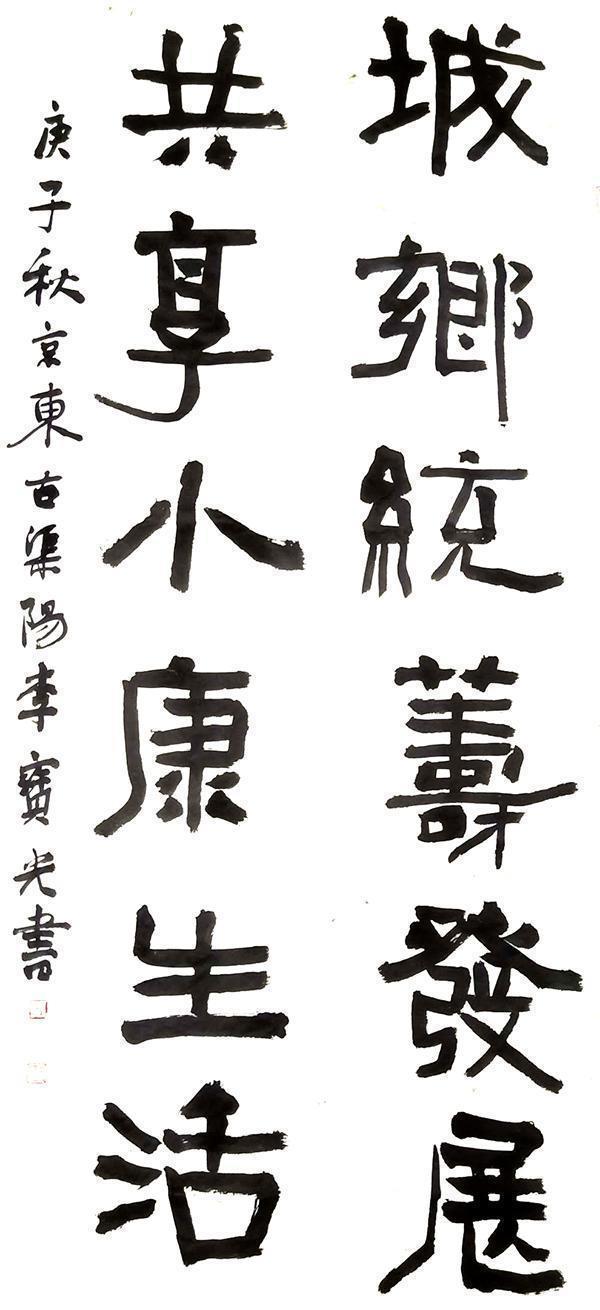 城鄉統籌發展
共享小康生活
庚子秋京東古渠陽李寶光書